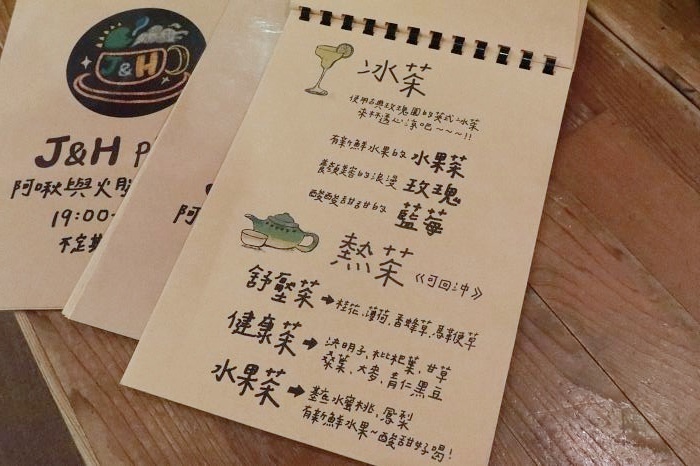 J&H
J&H P
阿啾與火
19:00-
不定
阿
冰茶
使用古典玫瑰園的英式冰茶
來杯透心涼吧~~~!!
有新鮮水果的 水果茶
養顏美容的浪漫 玫瑰
酸酸甜甜的 藍莓
熱茶 《可回沖》
舒壓茶→桂花,薄荷,香蜂草,馬鞭草
健康茶→決明子,枇杷葉,甘草
桑葉,大麥,青仁黑豆
水果茶→基底水蜜桃,鳳梨
有新鮮水果~酸甜好喝!